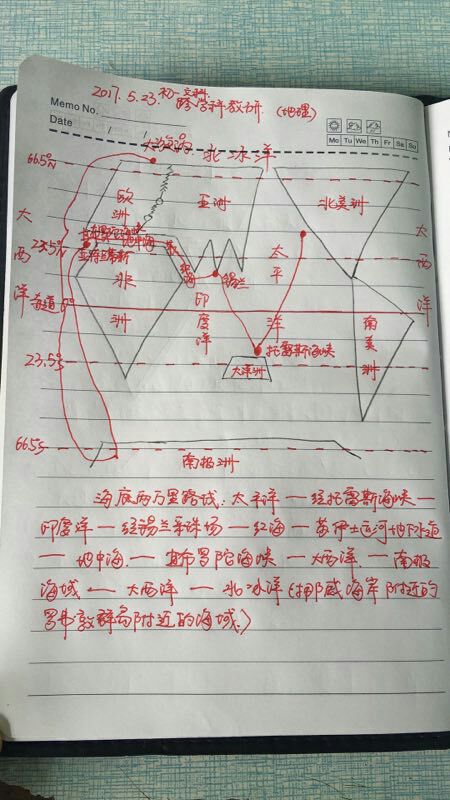 2017.5.23.初一文科
跨学科教研.(地理)
Memo No.
Date / /
Mo Tu We Th Fr Sa Su
北冰洋
66.5°N
欧洲
亚洲
北美洲
大西洋
23.5°N
地中海
红海
锡兰
太平洋
大西洋
非洲
印度洋
赤道 0°
南美洲
托雷斯海峡
23.5°S
大洋洲
66.5°S
南极洲
海底两万里路线:太平洋—经托雷斯海峡—
印度洋—经锡兰采珠场—红海—苏伊士运河地下隧道
—地中海—直布罗陀海峡—大西洋—南极
海域—大西洋—北冰洋(挪威海岸附近的
罗弗敦群岛附近的海域.)